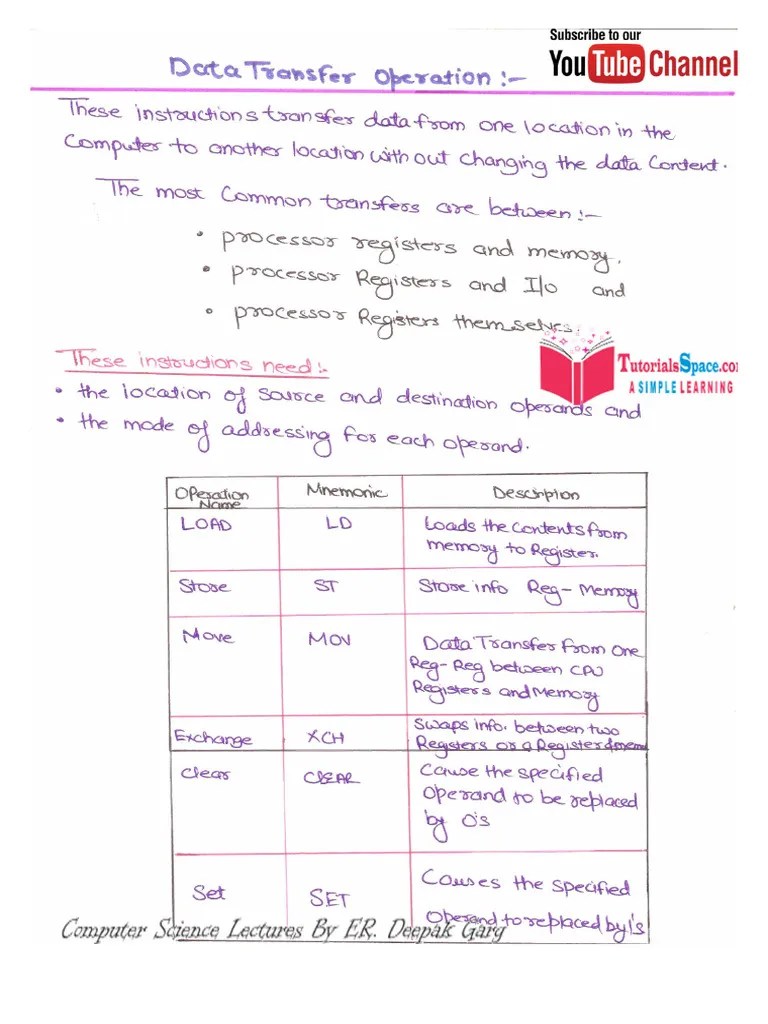 Subscribe to our
YouTube Channel
Data Transfer Operation :-
These instructions transfer data from one location in the
Computer to another location without changing the data Content.
The most Common transfers are between :-
• processor registers and memory.
• processor Registers and I/o and
• processor Registers themselves.
These instructions need :-
TutorialsSpace.com
A SIMPLE LEARNING
• the location of source and destination operands and
• the mode of addressing for each operand.
Operation Name Mnemonic Description
LOAD LD Loads the contents from
memory to Register.
Store ST Store info Reg - Memory
Move MOV Data Transfer from one
Reg - Reg between CPU
Registers and Memory
Exchange XCH Swaps info. between two
Registers or a Register & mem
Clear CLEAR Cause the specified
Operand to be replaced
by 0's
Set SET Causes the specified
Operand to replaced by 1's
Computer Science Lectures By ER. Deepak Garg